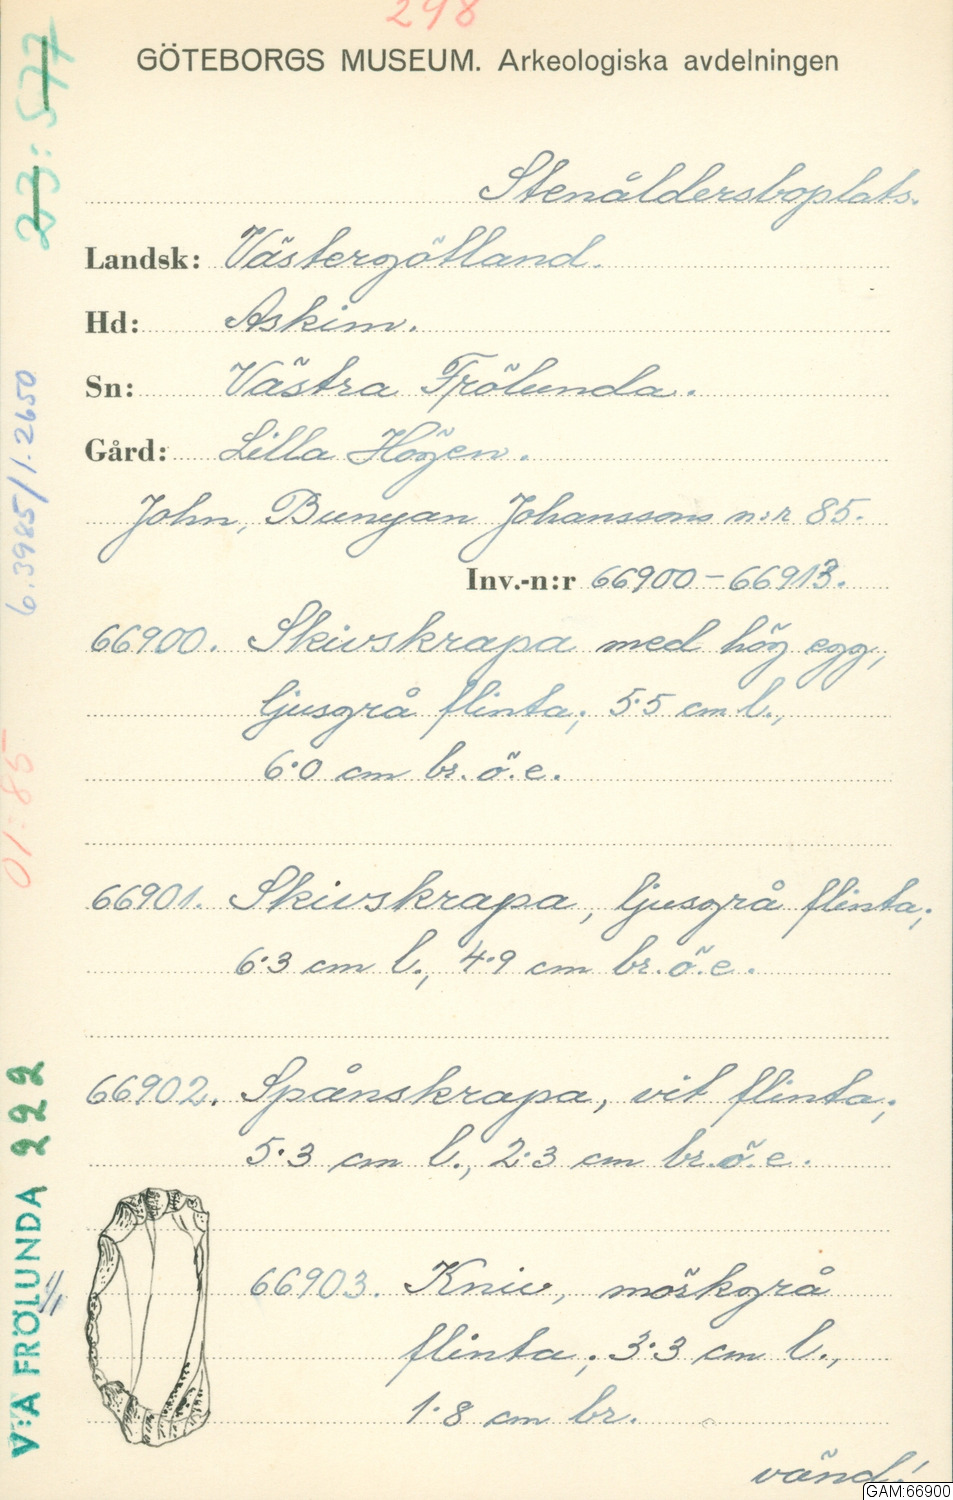 298
GÖTEBORGS MUSEUM. Arkeologiska avdelningen
23:577
Stenåldersboplats.
Landsk: Västergötland.
Hd: Askim.
Sn: Västra Frölunda.
Gård: Lilla Högen.
John, Bunyan Johanssons n:r 85.
Inv.-n:r 66900-66913.
6.3985/1.2650
66900. Skivskrapa med hög egg,
ljusgrå flinta; 5·5 cm l.,
6·0 cm br. ö.e.
01:85
66901. Skivskrapa, ljusgrå flinta;
6·3 cm l., 4·9 cm br. ö.e.
66902. Spånskrapa, vit flinta;
5·3 cm l., 2·3 cm br. ö.e.
V:A FRÖLUNDA 222
1/1
66903. Kniv, mörkgrå
flinta; 3·3 cm l.,
1·8 cm br.
vänd!
GAM:66900